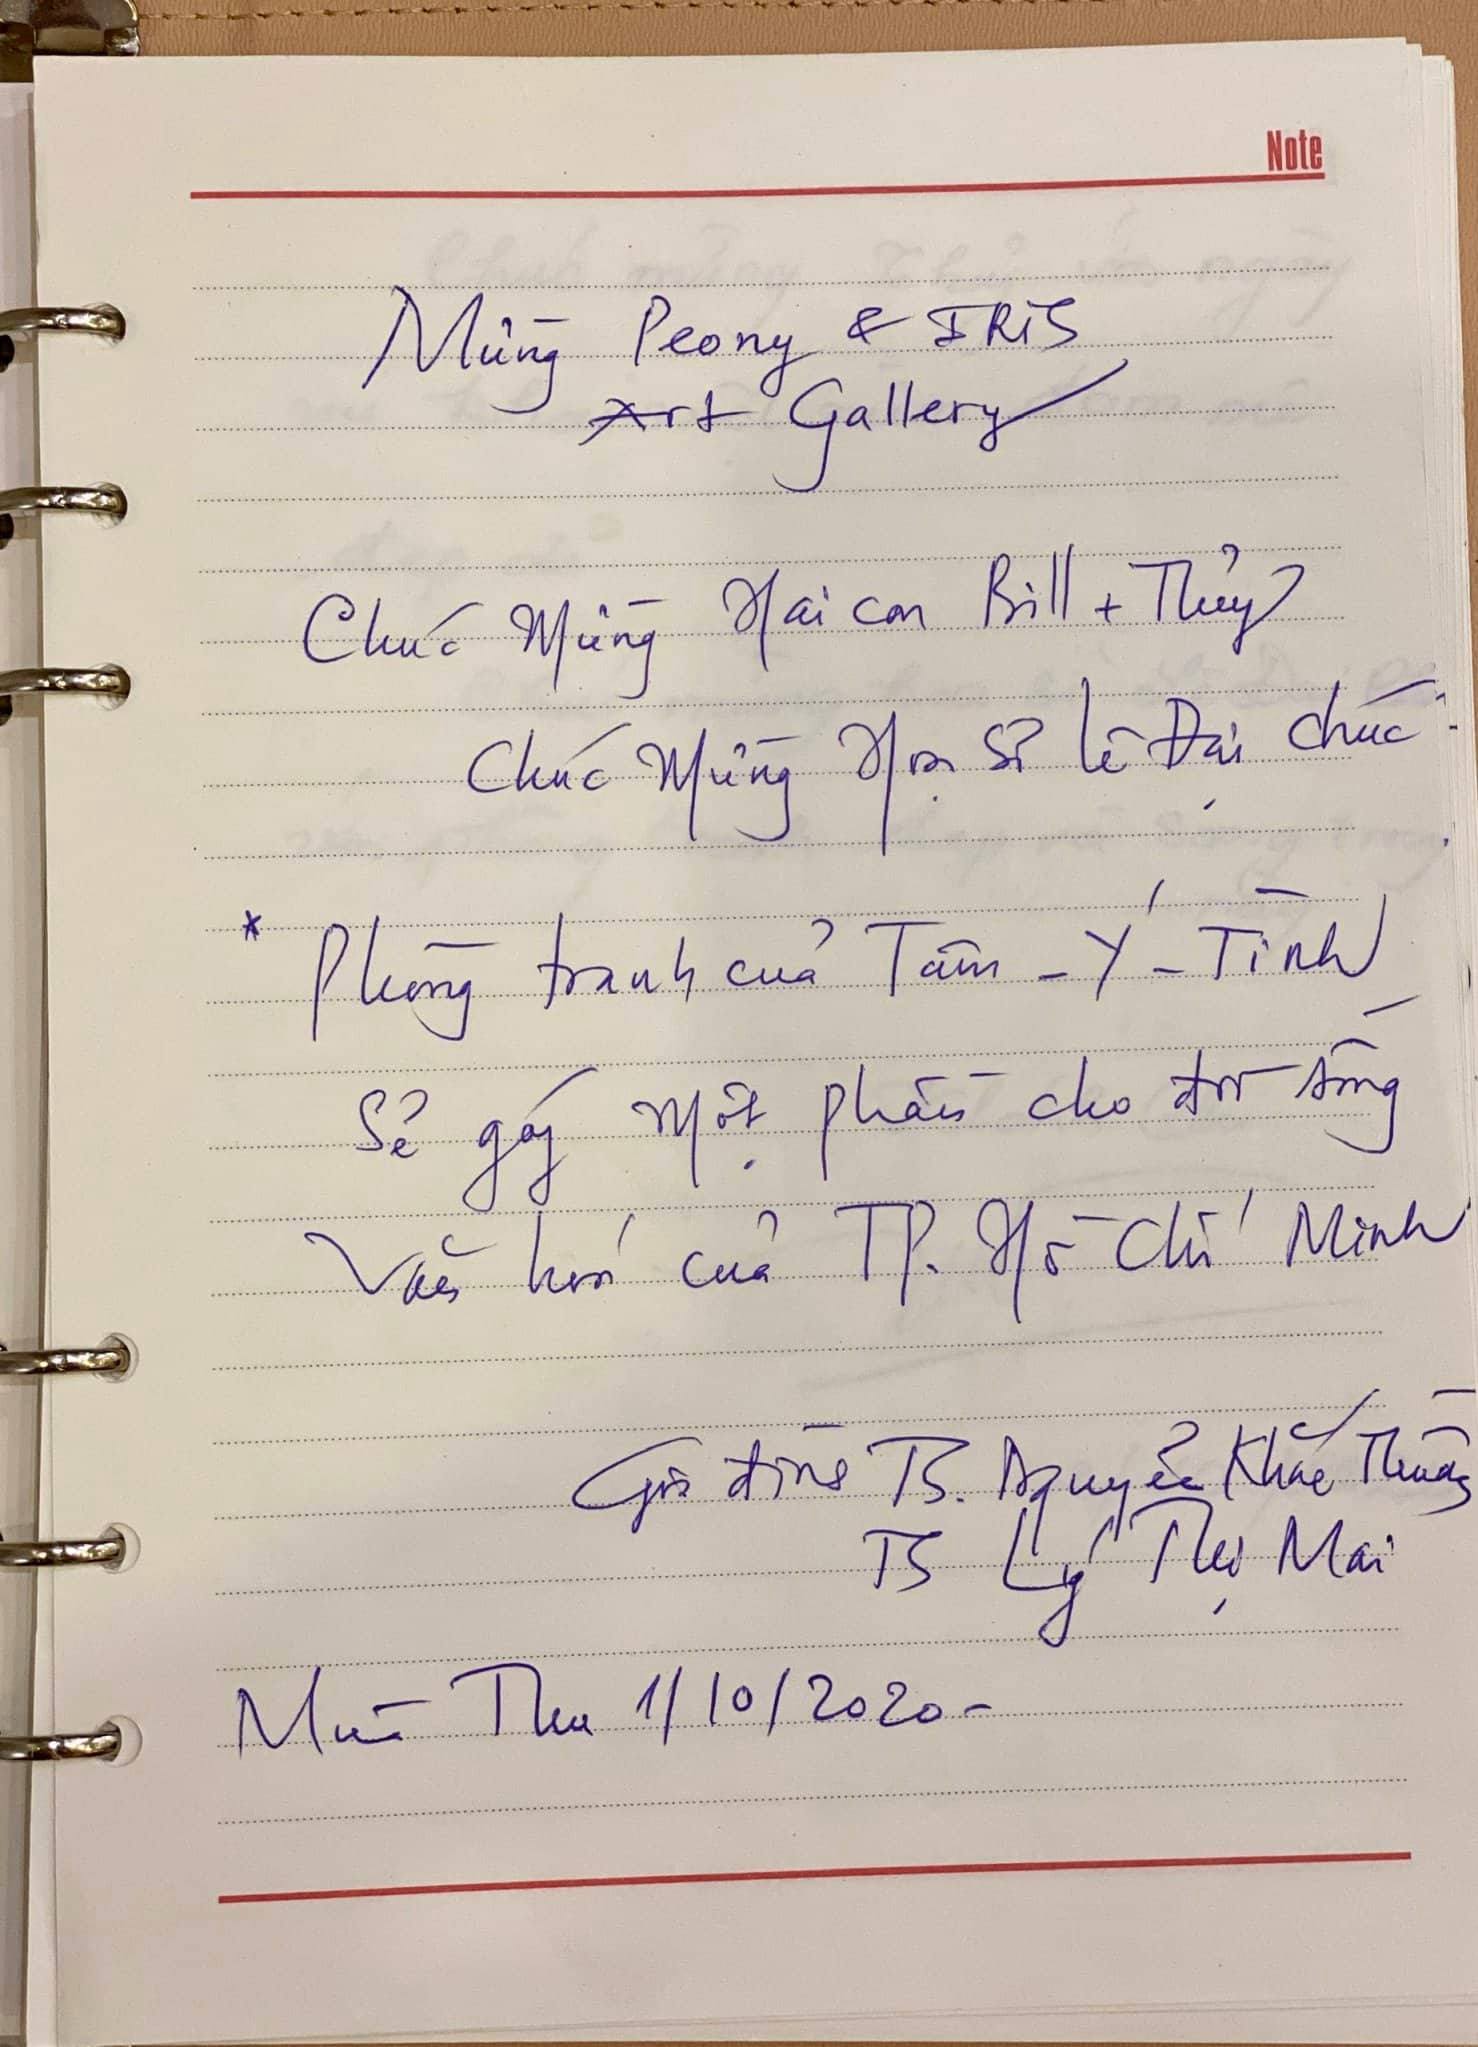 Note
Mừng Peony & IRIS
Art Gallery
Chúc Mừng Hai con Bill + Thủy
Chúc Mừng Họa Sĩ Lê Đại Chúc.
* Phòng tranh của Tâm - Ý - Tình
Sẽ góp một phần cho đời sống
Văn hoá của TP. Hồ Chí Minh
Gia đình TS. Nguyễn Khắc Thuần
TS Lý Thị Mai
Mùa Thu 1/10/2020-